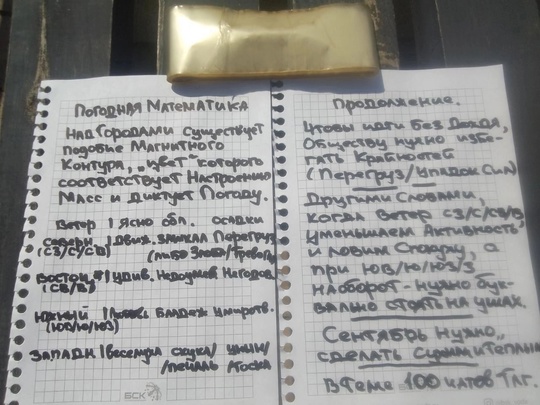 Погодная Математика
Над Городами существует
подобие Магнитного
Контура, „цвет" которого
соответствует Настроению
Масс и диктует Погоду.
Ветер | Ясно обл. осадки
Северн | Движ. Перегруз
(СЗ/С/СВ) (либо Злоба/Тревога)
Восточн | удив. Недоумен Негодов
(СВ/В)
Южний | Блаженс Умиротв.
(ЮВ/Ю/ЮЗ)
Западн | Веселуха скука/ уныни/
/печаль тоска
БСК
Продолжение.
Чтобы идти без Дождя,
Обществу нужно избе-
гать Крайностей
(Перегруз/Упадок Сил)
Другими Словами,
когда Ветер СЗ/С/СВ/В
уменьшаем Активность,
и ловим , а
при ЮВ/Ю/ЮЗ/З
наоборот - нужно бук-
вально стоять на ушах.
Сентябрь нужно
сделать
В теме 100 чатов Тлг.
БСК